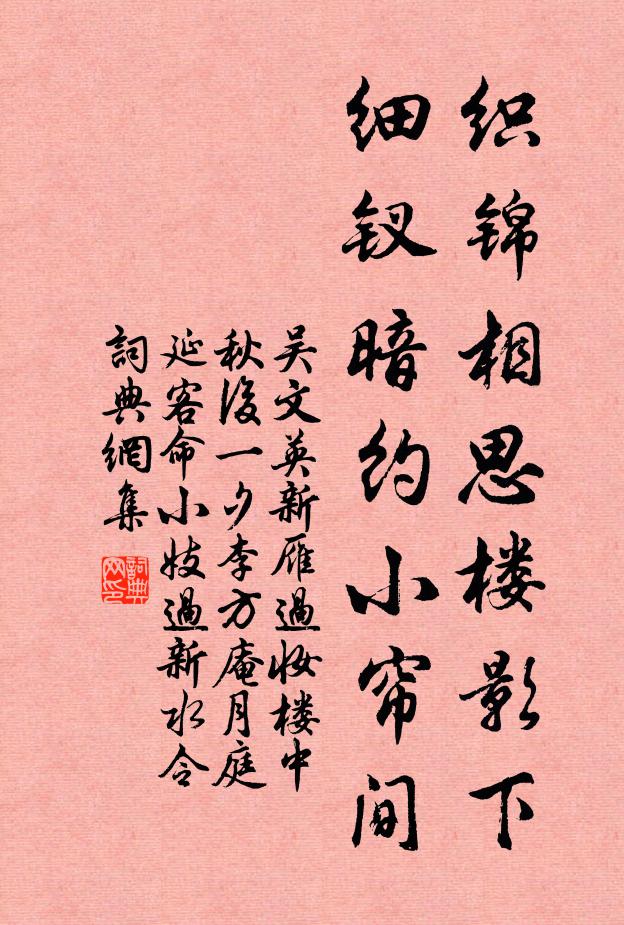 织锦相思楼影下
细钗暗约小帘间
吴文英新雁過妆楼中
秋後一夕李方庵月庭
延客命小妓過新水令
詞典網集
詞典网印